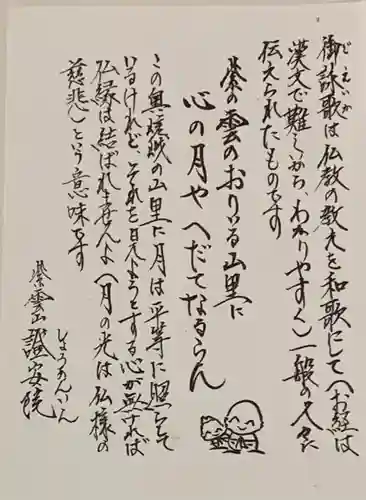 御詠歌は仏教の教えを和歌にして(お経は
ごえいか
漢文で難しいから、わかりやすく)一般の人々に
伝えられたものです
紫の雲のおりゐる山里に
心の月や へだてなるらん
この奥嵯峨の山里に月は平等に照らして
いるけれど、それを見ようとする心が無ければ
仏縁は結ばれませんよ(月の光は仏様の
慈悲)という意味です
紫雲山 證安院
しょうあんいん